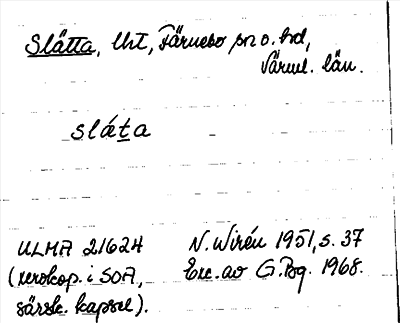 Slätta, Uht, Färnebo sn o. hd,
Värml. län.
slát̲a
ULMA 21624
(xerokop. i SOA,
särsk. kapsel).
N. Wirén 1951, s. 37
Exc. av G. Bg. 1968.